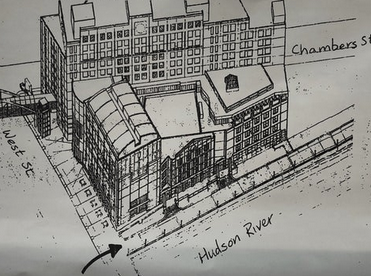 Chambers St
West St
Hudson River